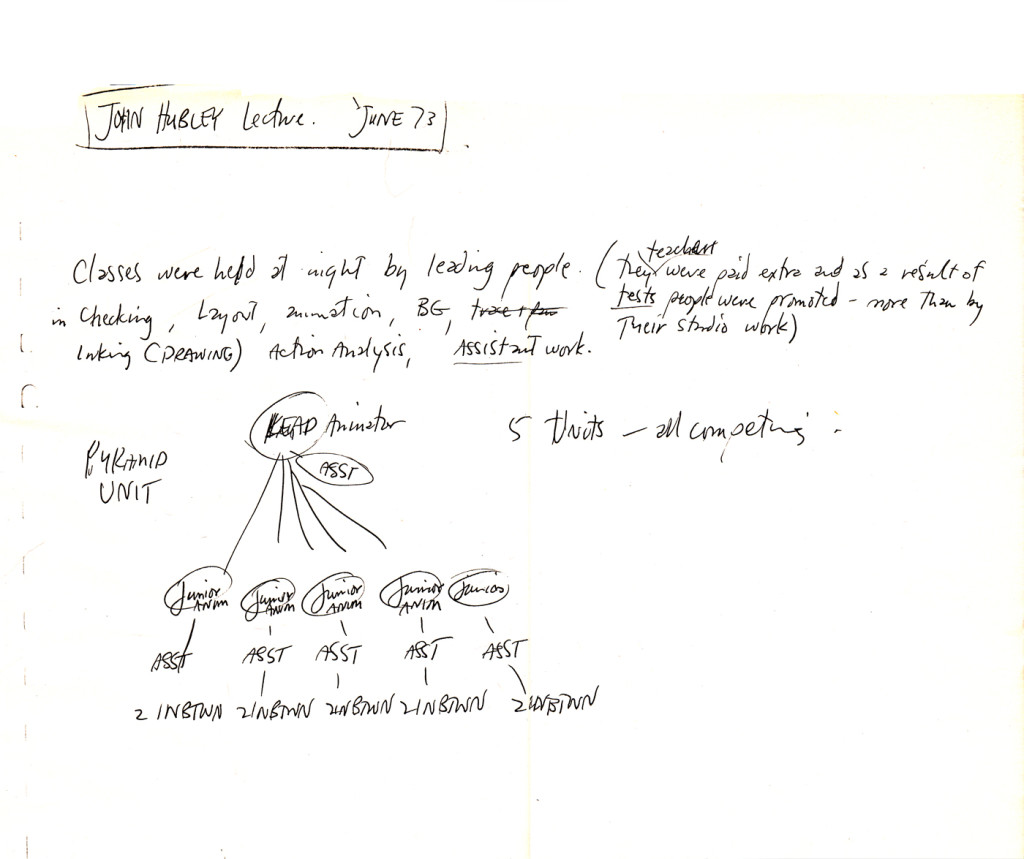 JOHN HUBLEY Lecture. JUNE 73
Classes were held at night by leading people.
in Checking, Layout, animation, BG, trace + pan
Inking (DRAWING) Action Analysis, ASSistant work.
teachers
(they were paid extra and as a result of
tests people were promoted - more than by
Their studio work)
LEAD Animator
ASST
5 Units — all competing
PYRAMID
UNIT
Junior ANIM Junior ANIM Junior ANIM Junior ANIM Junior
ASST ASST ASST ASST ASST
2 INBTWN 2 INBTWN 2 INBTWN 2 INBTWN 2 INBTWN